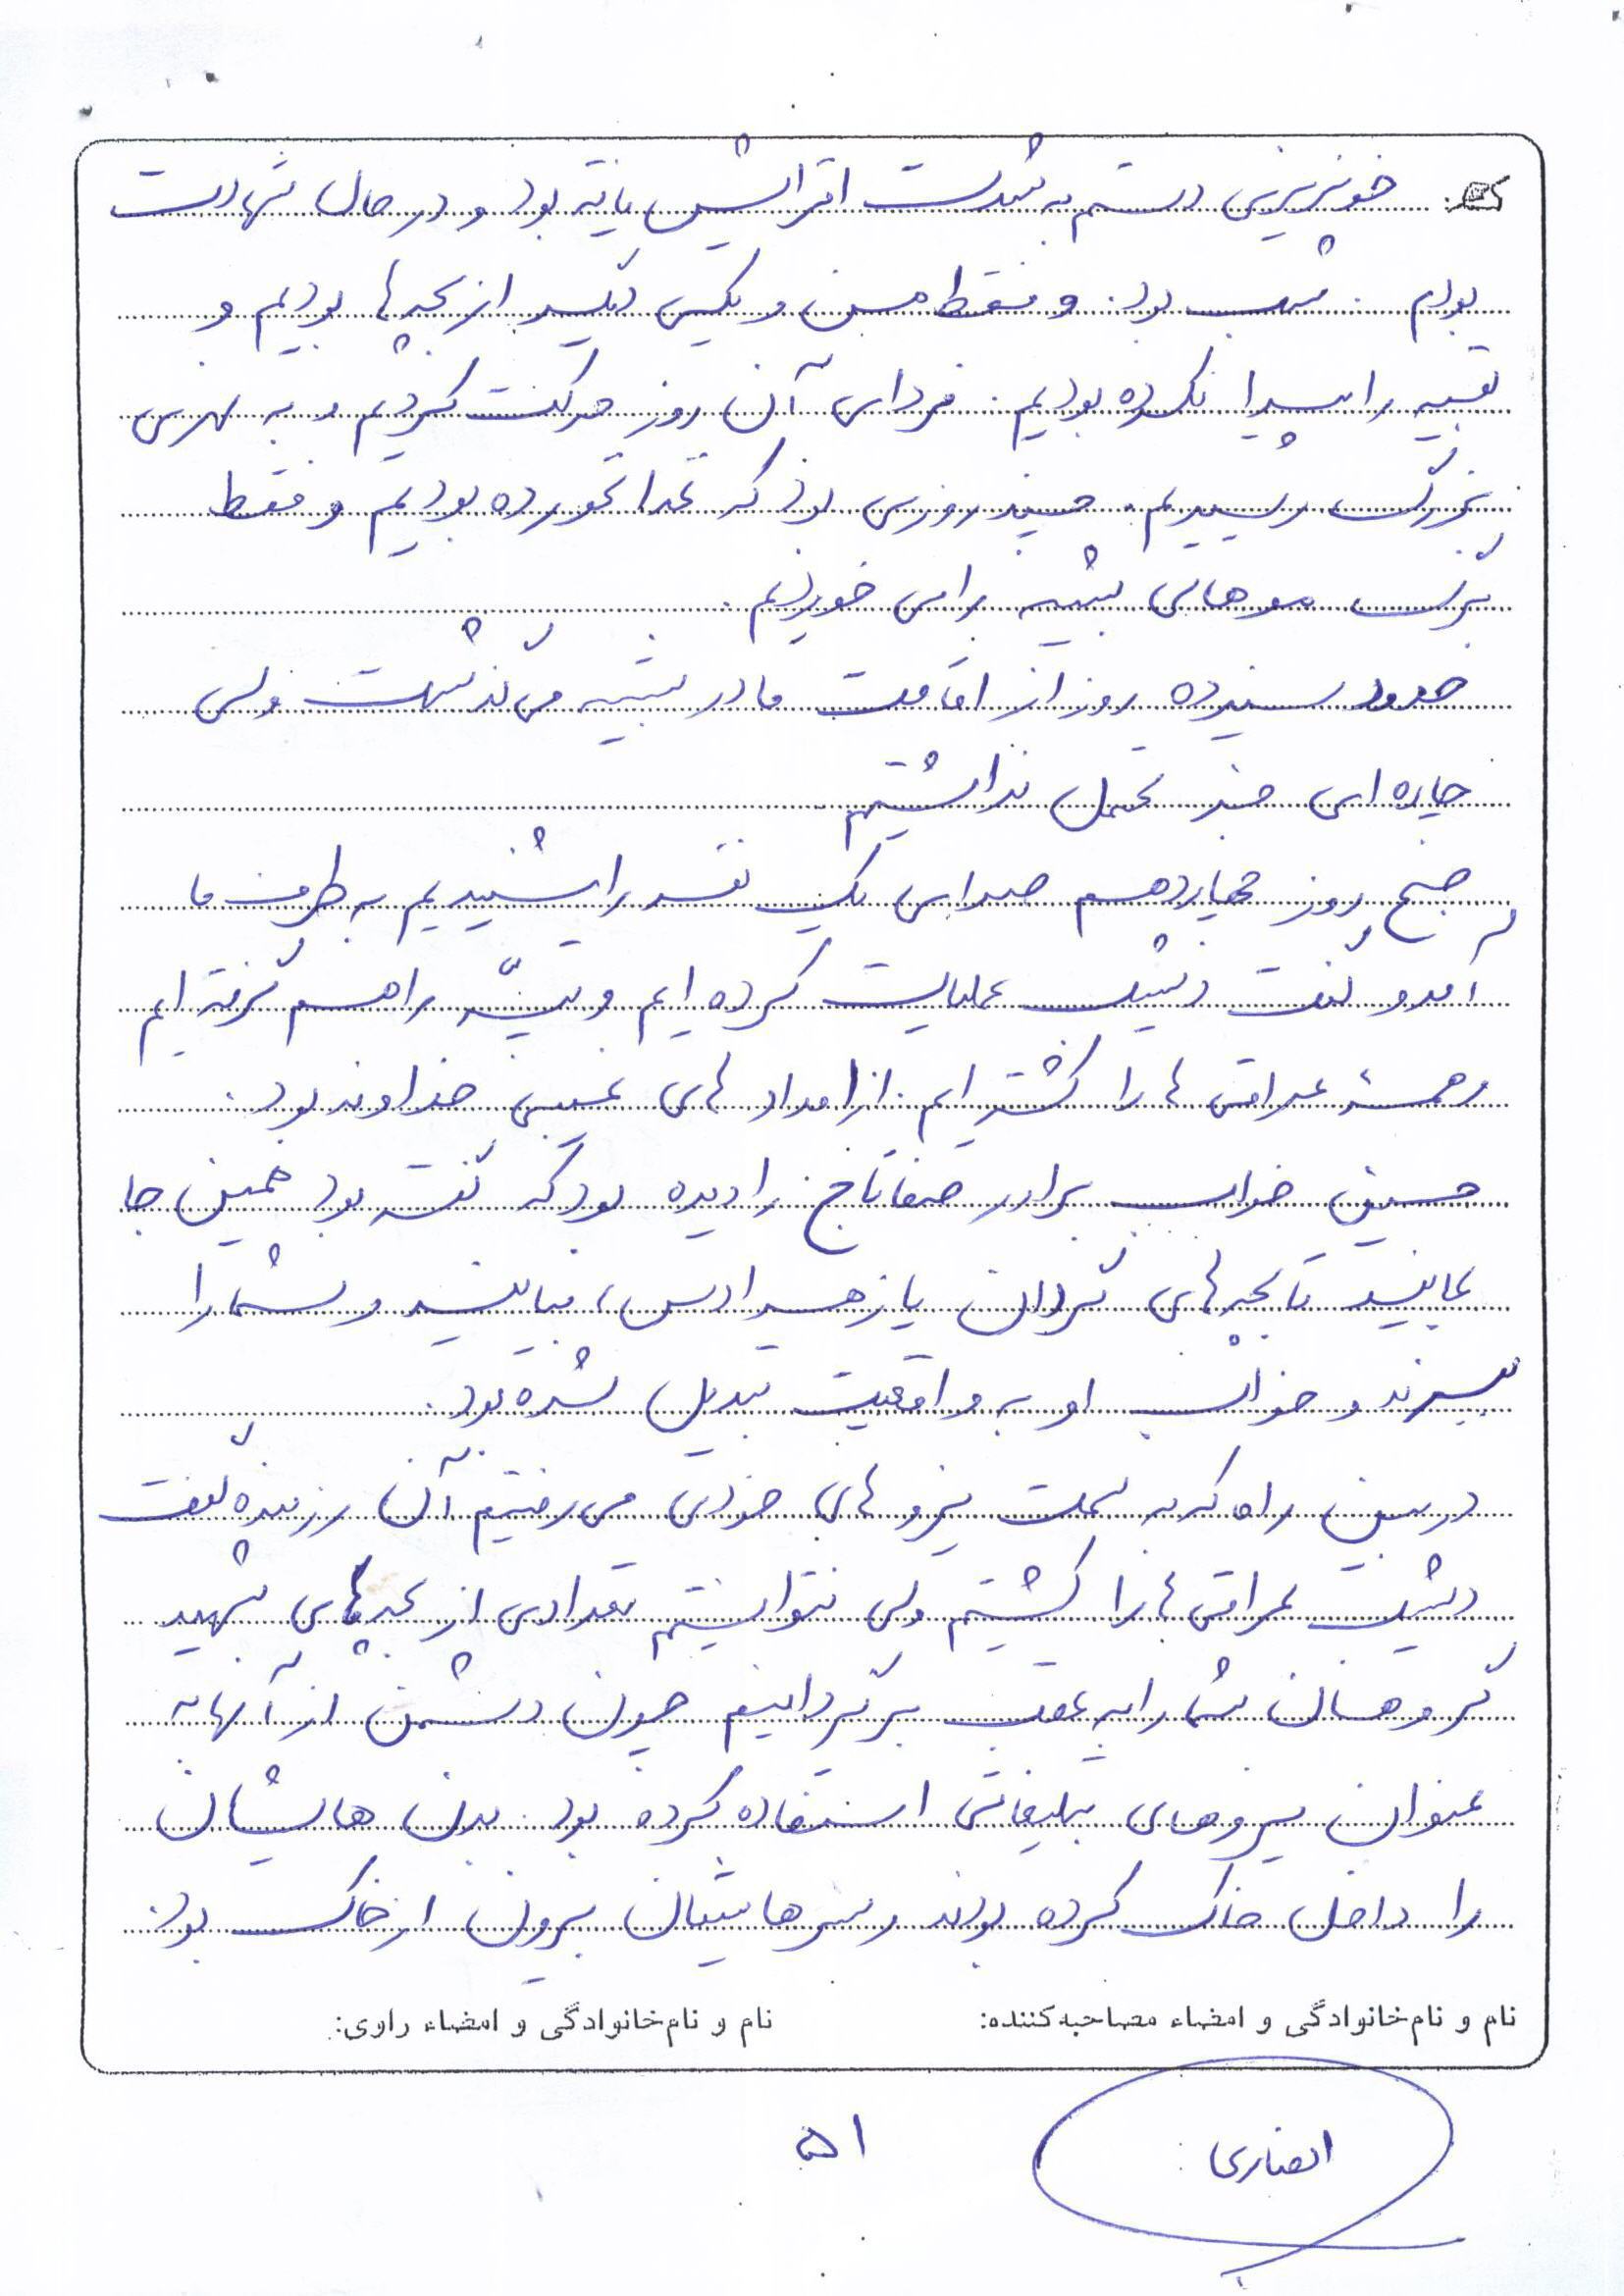 خونریزی دستم به شدت افزایش یافته بود و در حال شهادت
بودم. شب بود. و فقط من و یکی دیگر از بچه‌ها بودیم و
بقیه را پیدا نکرده بودیم. فردای آن روز حرکت کردیم و به نهری
بزرگ رسیدیم. چند روزی بود که غذا نخورده بودیم و فقط
برگ موهای بیشه را می خوردیم.
حدود سیزده روز از اقامت ما در بیشه می گذشت ولی
چاره ای جز تحمل نداشتیم
صبح روز چهاردهم صدای یک نفر را شنیدیم به طرف ما
آمد و گفت دیشب عملیات کرده ایم و تپّه را هم گرفته ایم
و همهٔ عراقی ها را کشته ایم. از امداد های غیبی خداوند بود.
حسین خواب برادر صفاتاج را دیده بود که گفته بود همین جا
بمانید تا بچه‌های گردان یازهرا (س) بیایند و شما را
ببرند و خواب او به واقعیت تبدیل شده بود.
در بین راه که به سمت نیرو های خودی می رفتیم آن رزمنده گفت
دیشب عراقی ها را کشتیم ولی نتوانستیم تعدادی از بچه‌های شهید
گروهان شما را به عقب برگردانیم چون دشمن از آنها به
عنوان نیروهای تبلیغاتی استفاده کرده بود. بدن هایشان
را داخل خاک کرده بودند و سرهایشان بیرون از خاک بود.
نام و نام‌خانوادگی و امضاء مصاحبه‌کننده: نام و نام‌خانوادگی و امضاء راوی:
انصاری
۵۱